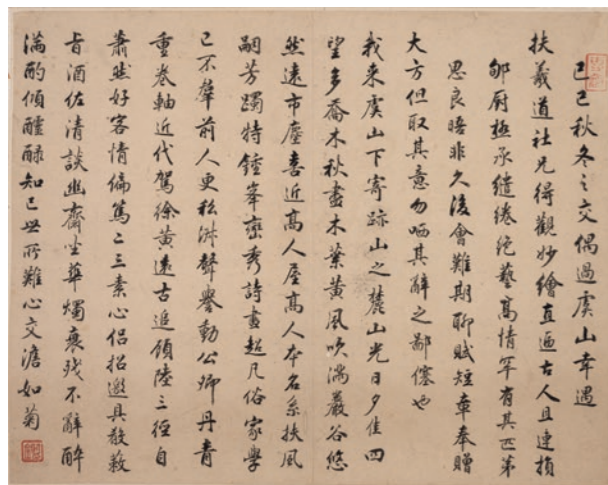 己巳秋冬之交偶過虞山幸遇
扶羲道社兄得觀妙繪直逼古人且連損
郇厨極承繾綣絶藝高情罕有其匹第
思良晤非久後會難期聊賦短章奉贈
大方但取其意勿哂其辭之鄙僿也
我來虞山下寄跡山之麓山光日夕佳四
望多喬木秋盡木葉黃風吹滿巖谷悠
然遠市塵喜近高人屋高人本名系扶風
嗣芳躅特鍾峯巒秀詩畫超凡俗家學
已不羣前人更私淑聲譽動公卿丹青
重卷軸近代駕徐黃遠古追顧陸三徑自
蕭然好客情偏篤二三素心侶招邀具殽蔌
旨酒佐清談幽齋坐華燭衰殘不辭醉
滿酌傾醽醁知己世所難心交澹如菊